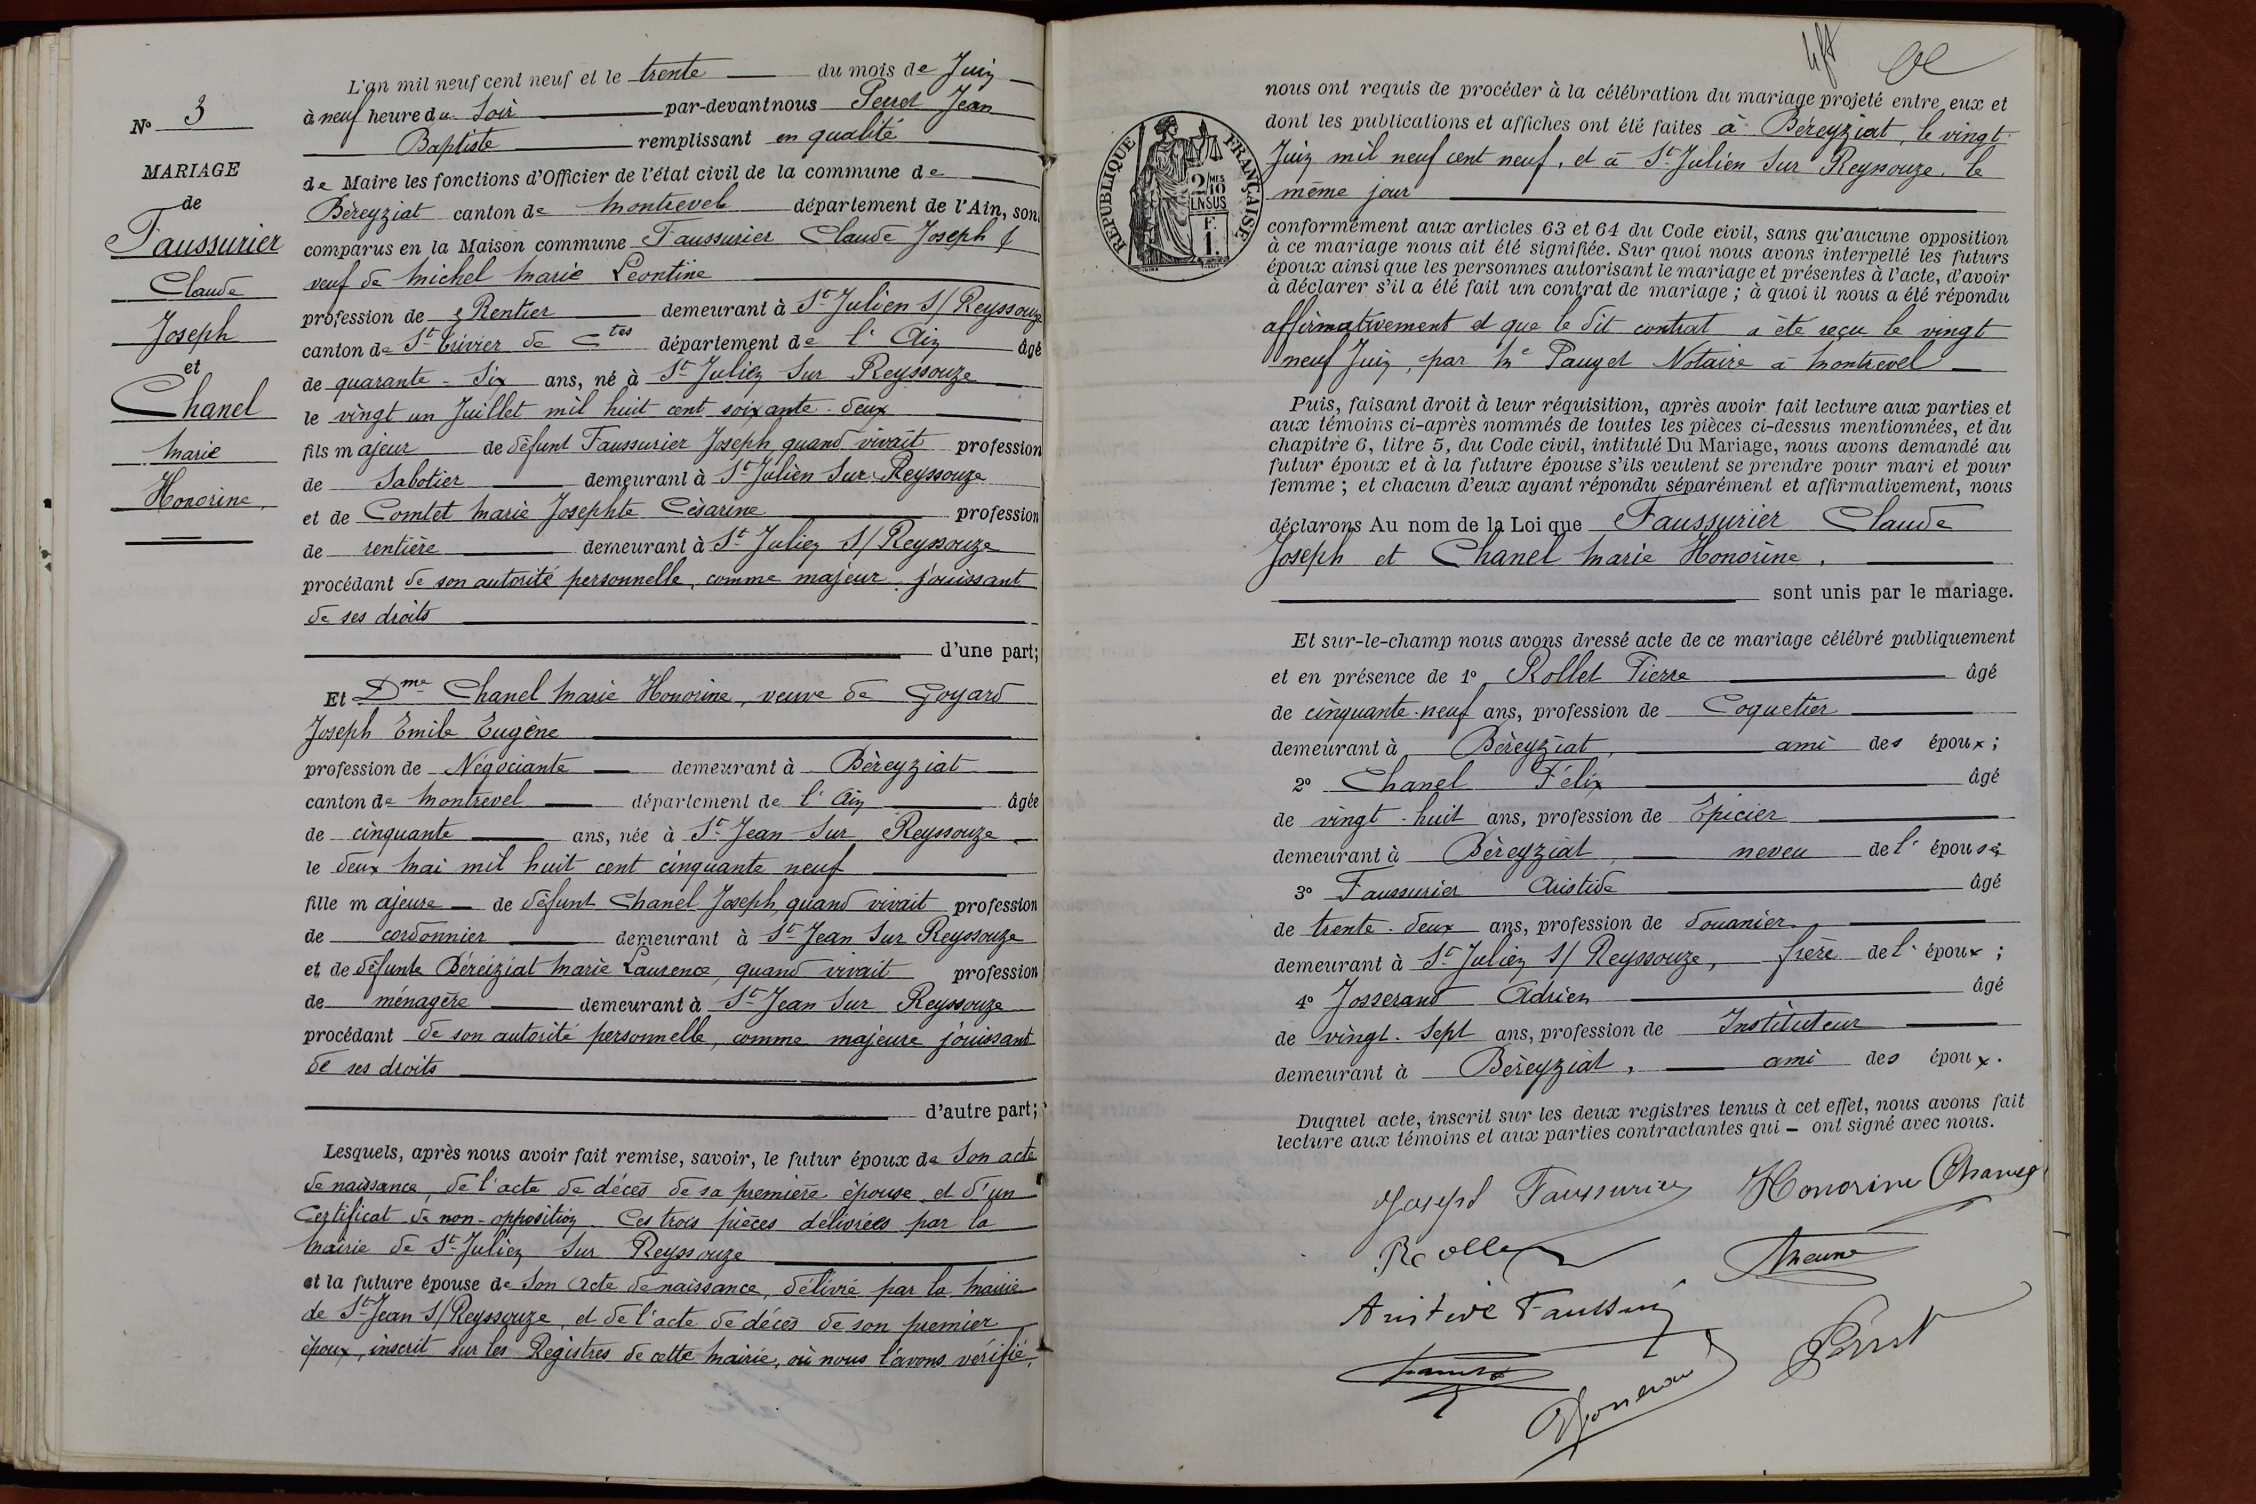 L'an mil neuf cent neuf et le trente du mois de Juin
à neuf heure du Soir par-devant nous Perret Jean
Baptiste remplissant en qualité
de Maire les fonctions d'Officier de l'état civil de la commune de
Béreyziat canton de Montrevel département de l'Ain, sont
comparus en la Maison commune Faussurier Claude Joseph
veuf de Michel Marie Léontine
profession de Rentier demeurant à St Julien S/ Reyssouze
canton de St Trivier de Ctes département de l'Ain âgé
de quarante-six ans, né à St Julien Sur Reyssouze
le vingt un Juillet mil huit cent soixante-deux
fils majeur de défunt Faussurier Joseph, quand vivait profession
de Sabotier demeurant à St Julien Sur Reyssouze
et de Comtet Marie Josephte Césarine profession
de rentière demeurant à St Julien S/ Reyssouze
procédant de son autorité personnelle, comme majeur jouissant
de ses droits
d'une part;
Et Dme Chanel Marie Honorine, veuve de Goyard
Joseph Emile Eugène
profession de Négociante demeurant à Béreyziat
canton de Montrevel département de l'Ain âgée
de cinquante ans, née à St Jean Sur Reyssouze
le deux Mai mil huit cent cinquante neuf
fille majeure de défunt Chanel Joseph, quand vivait profession
de cordonnier demeurant à St Jean Sur Reyssouze
et de défunte Béreiziat Marie Laurence, quand vivait profession
de ménagère demeurant à St Jean Sur Reyssouze
procédant de son autorité personnelle, comme majeure jouissant
de ses droits
d'autre part;
Lesquels, après nous avoir fait remise, savoir, le futur époux de Son acte
de naissance, de l'acte de décès de sa première épouse et d'un
Certificat de non-opposition. Ces trois pièces délivrées par la
Mairie de St Julien Sur Reyssouze
et la future épouse de Son Acte de naissance, délivré par la Mairie
de St Jean S/ Reyssouze, et de l'acte de décès de son premier
époux, inscrit sur les Registres de cette Mairie, où nous l'avons vérifié,
No 3
MARIAGE
de
Faussurier
Claude
Joseph
et
Chanel
Marie
Honorine,
RÉPUBLIQUE FRANÇAISE
2/10 MES
EN SUS
F.
1.
nous ont requis de procéder à la célébration du mariage projeté entre eux et
dont les publications et affiches ont été faites à Béreyziat, le vingt
Juin mil neuf cent neuf, et à St Julien Sur Reyssouze, le
même jour
conformément aux articles 63 et 64 du Code civil, sans qu'aucune opposition
à ce mariage nous ait été signifiée. Sur quoi nous avons interpellé les futurs
époux ainsi que les personnes autorisant le mariage et présentes à l'acte, d'avoir
à déclarer s'il a été fait un contrat de mariage; à quoi il nous a été répondu
affirmativement et que le dit contrat a été reçu le vingt
neuf Juin, par Me Pauget Notaire à Montrevel
Puis, faisant droit à leur réquisition, après avoir fait lecture aux parties et
aux témoins ci-après nommés de toutes les pièces ci-dessus mentionnées, et du
chapitre 6, titre 5, du Code civil, intitulé Du Mariage, nous avons demandé au
futur époux et à la future épouse s'ils veulent se prendre pour mari et pour
femme; et chacun d'eux ayant répondu séparément et affirmativement, nous
déclarons Au nom de la Loi que Faussurier Claude
Joseph et Chanel Marie Honorine,
sont unis par le mariage.
Et sur-le-champ nous avons dressé acte de ce mariage célébré publiquement
et en présence de 1o Rollet Pierre âgé
de cinquante-neuf ans, profession de Coquetier
demeurant à Béreyziat, ami des époux;
2o Chanel Félix âgé
de vingt-huit ans, profession de Epicier
demeurant à Béreyziat, neveu de l'épouse;
3o Faussurier Aristide âgé
de trente-deux ans, profession de douanier
demeurant à St Julien S/ Reyssouze, frère de l'époux;
4o Josserand Adrien âgé
de vingt-sept ans, profession de Instituteur
demeurant à Béreyziat, ami des époux.
Duquel acte, inscrit sur les deux registres tenus à cet effet, nous avons fait
lecture aux témoins et aux parties contractantes qui - ont signé avec nous.
Joseph Faussurier Honorine Chanel
Rollet
Aristide Faussurier
Josserand Perret